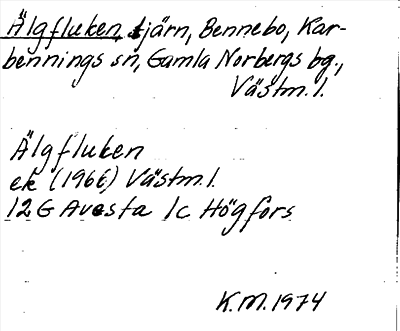 Älgfluken, tjärn, Bennebo, Kar-
bennings sn, Gamla Norbergs bg.,
Västm. l.
Älgfluken
ek (1966) Västm. l.
12G Avesta 1c Högfors
K.M. 1974